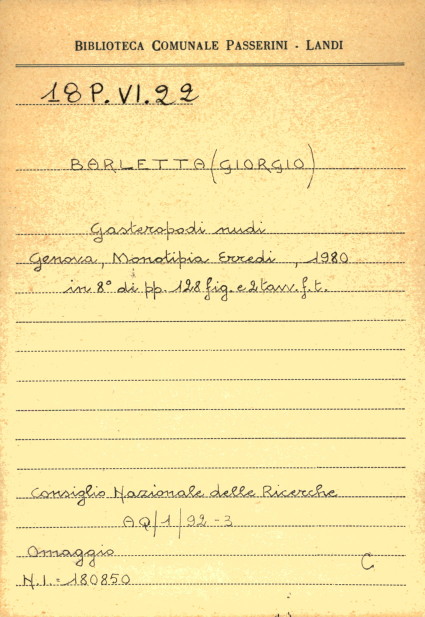 BIBLIOTECA COMUNALE PASSERINI - LANDI
18 P. VI. 22
BARLETTA (GIORGIO)
Gasteropodi nudi
Genova, Monotipia Erredi, 1980
in 8° di pp. 128 fig. e 2 tavv. f. t.
Consiglio Nazionale delle Ricerche
AQ/1/92-3
Omaggio
C
N.I. = 180850